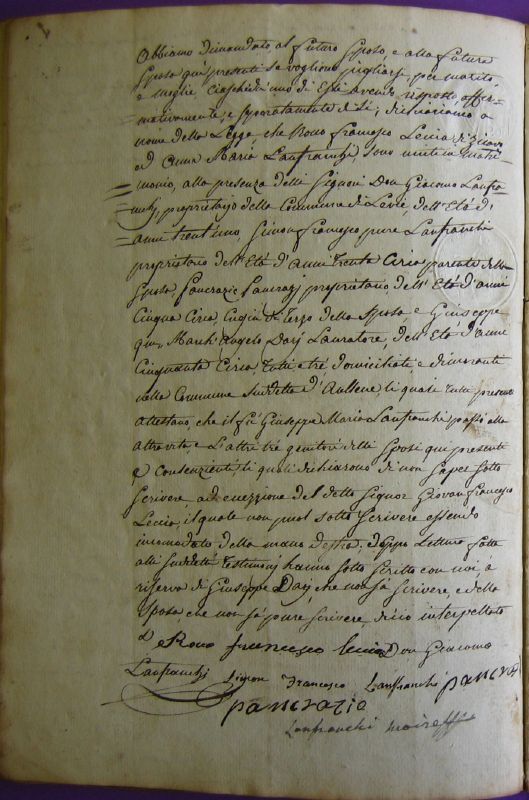 Abbiamo dimandato al futuro sposo, e alla futura
sposa qui presenti se vogliono pigliarsi per marito,
e moglie ciaschiduno di Essi avendo risposto affir
mativamente, e separatamente di sì; dichiariamo a
nome della Legge che Rocco Francesco Leccia di
ed Anna Maria Lanfranchj, sono uniti in matri
monio, alla presenza delli Signori Don Giacomo Lanfra
nchj proprietario della Commune di Levie dell'Età d'
anni trent'uno Simon Francesco pure Lanfranchi
proprietario dell'Età d'Anni trenta Circa parente dello
Sposo Pancrazio proprietario, dell'Età d'anni
Cinqua Circa, Cugin di Terzo della Sposa e Giuseppe
qm. Mach'Angelo Lauratore, dell'Età d'anni
Cinquanta Circa tutti e tré, domiciliati e dimoranti
nella Commune suddetta d'Aullene, li quali tutti presenti
attestano, che il fù Giuseppe Maria Lanfranchi, passò alla
altra vita, e L'altri tre genitori delli Sposi qui presenti
e Consenzienti li quali dichiarono di non saper sotto
Scrivere, ad eccezzione del detto Signor Giovan Francesco
Leccia, il quale non puol sotto Scrivere essendo
incomodato della mano destra, doppo Lettura fatta
alli suddetti testimonj hanno sotto Scritto con noi a
riserva di Giuseppe che non sà scrivere, e della
Sposa, che non sà pure scrivere, di ciò interpellata
Rocco francesco leccia Don Giacomo
Lanfranchj Simon Francesco Lanfranchi
pancrazio
Lanfranchi